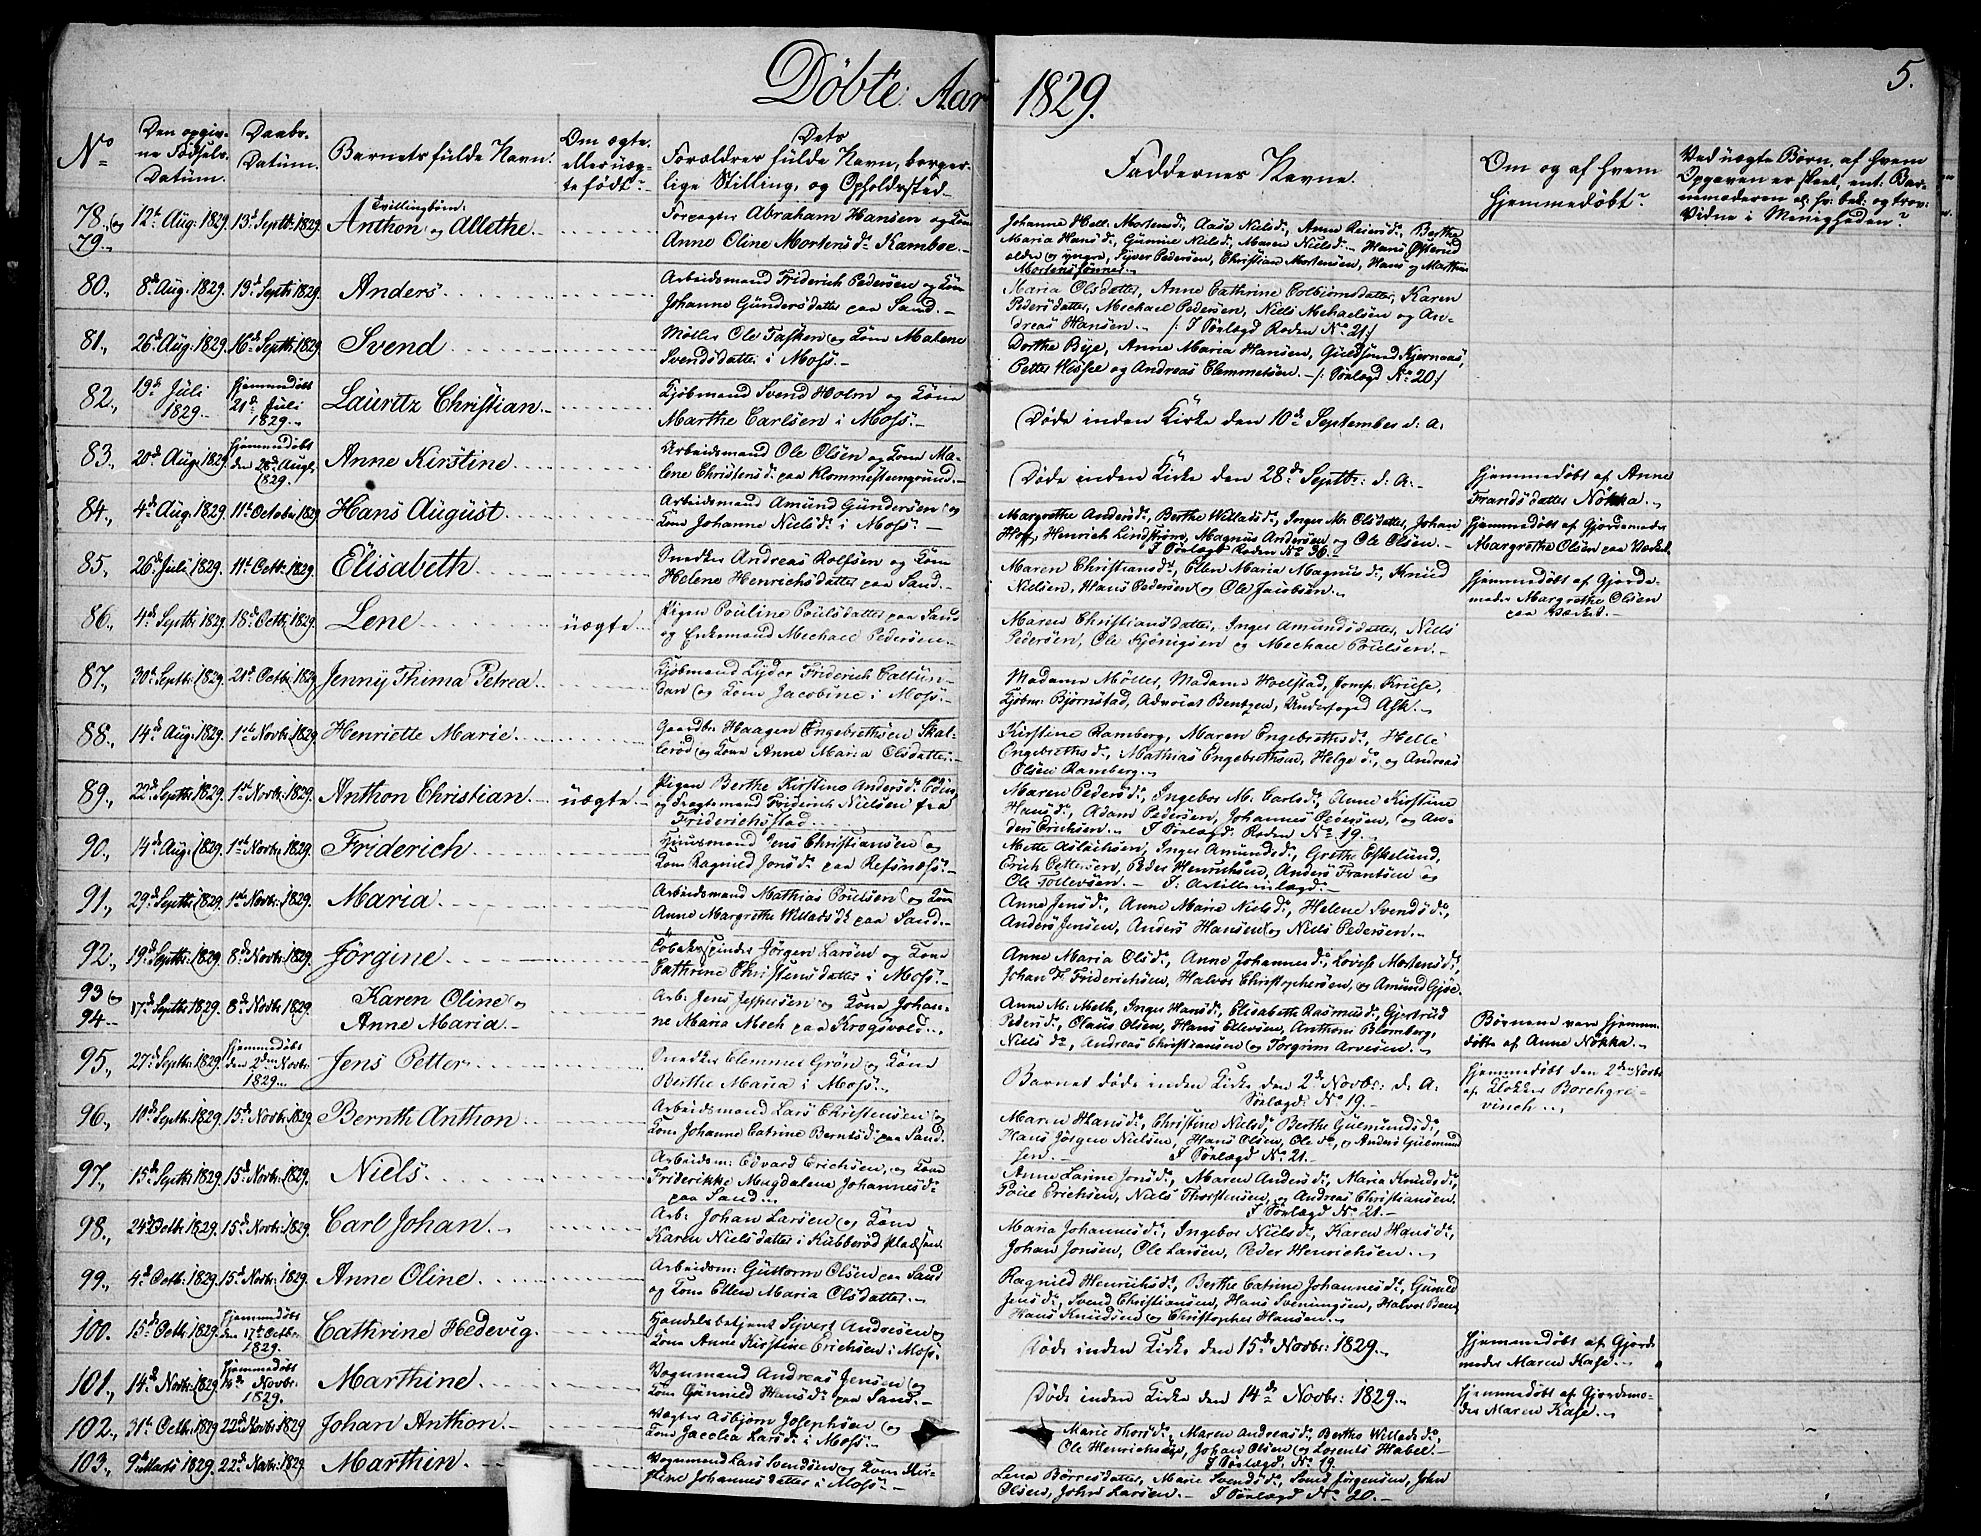 Døbte Aar 1829.
5.
No
Den opgiv-
ne Fødsels-
Datum.
Daabs-
Datum.
Barnets fulde Navn.
Om ægte
eller uæg-
te født?
Dets
Forældres fulde Navn, borger-
lige Stilling, og Opholdssted
Faddernes Navne.
Om og af hvem
hjemmedøbt?
Ved uægte Børn, af hvem
Opgaven er skeet, ent: Bar-
nemoderen el: hv: bek: og trov:
Vidne i Menigheden?
78., og
79.,
12te Aug: 1829.
13de Septbr: 1829.
Tvillingbørn:
Anthon og Allethe.
Forpagter Abraham Hansen og Kone
Anne Oline Mortensd: Kamboe.
Johanne Hell: Mortensd:, Aase Nielsd:, Anne Reiersd:, Berthe
Maria Hansd:, Gunine Nielsd:, Maren Nielsd:, Hans Østerud
ældre og yngre, Syver Pedersen, Christian Mortensen, Hans og Mathias
Mortenssønner.
80.,
8de Aug: 1829.
13de Septbr: 1829.
Anders
Arbeidsmand Friderich Pedersen og Kone
Johanne Gundersdatter paa Sand.
Maria Olsdatter, Anne Cathrine Colbiørnsdatter, Karen
Pedersdatter, Mechael Pedersen, Niels Mechaelsen og An-
dreas Hansen. /: I Sørlægd Roden No 21:/
81.,
26de Aug: 1829.
16de Septbr: 1829.
Svend
Møller Ole Tasken og Kone Malene
Svendsdatter i Moss.
Dorthe Bye, Anne Maria Hansen, Guldsund Kjernaas,
Petter Wessel og Andreas Clemmetsen. /: Sørlægd No 20:/
82.,
19de Juli
1829.
Hjemmedøbt
21de Juli
1829.
Lauritz Christian.
Kjøbmand Svend Holm og Kone
Marthe Carlsen i Moss.
Døde inden Kirke den 10de September d: A.
83.,
20de Aug: 1829.
Hjemmedøbt
den 28de Aug:
1829.
Anne Kirstine
Arbeidsmand Ole Olsen og Kone Ma-
lene Christensd: paa Klommesteengrund.
Døde inden Kirke den 28de Septbr: d: A.
Hjemmedøbt af Anne
Frandsdatter Nøkka.
84.,
4de Aug: 1829.
11te October 1829.
Hans August
Arbeidsmand Amund Gundersen og
Kone Johanne Nielsd: i Moss.
Margrethe Andersd:, Berthe Willadsd:, Inger M: Olsdatter, Johan
Hoff, Henrich Lindstrøm, Magnus Andersen og Ole Olsen.
I Sørlægd Roden No 36.
Hjemmedøbt af Gjordemoder
Margrethe Olsen paa Værket.
85.,
26de Juli 1829.
11te Octbr: 1829.
Elisabeth
Snedker Andreas Rolfsen og Kone
Helene Henrichsdatter paa Sand.
Maren Christiansd:, Ellen Maria Magnusd:, Knud
Nielsen, Hans Pedersen og Ole Jacobsen.
Hjemmedøbt af Gjorde-
moder Margrethe Olsen
paa Værket.
86.,
4de Septbr: 1829.
18de Octbr: 1829.
Lene
uægte
Pigen Pouline Poulsdatter paa Sand
og Enkemand Mechael Pedersen
Maren Christiansdatter, Inger Amundsdatter, Niels
Pedersen, Ole Kjønigsen og Mechael Poulsen.
87.,
30de Septbr: 1829.
21de Octbr: 1829.
Jenny Thima Petrea
Kjøbmand Lyder Friderich Callun-
dan og Kone Jacobine i Moss.
Madame Møller, Madame Hoelstad, Jomf: Kruse,
Kjøbm: Bjørnstad, Advocat Bentzen, Underfoged Ask.
88.,
14de Aug: 1829.
1ste Novbr: 1829.
Henriette Marie
Gaardbr: Haagen Engebrethsen Skal-
lerød og Kone Anne Maria Olsdatter.
Kirstine Ramberg, Maren Engebrethsd:, Helle
Engebrethsd:, Mathias Engebrethsen, Helge d:, og Andreas
Olsen Ramberg.
89.,
22de Septbr: 1829.
1ste Novbr: 1829.
Anthon Christian.
uægte
Pigen Berthe Kirstine Andersd:
og Fragtemand Friderich Nielsen fra
Friderichsstad
Maren Pedersd:, Ingebor M: Carlsd:, Anne Kirstine
Hansd:, Adam Pedersen, Johannes Pedersen, og An-
ders Erichsen. I Sørlægd: Roden No 19.
90.,
14de Aug: 1829.
1ste Novbr: 1829.
Friderich
Huusmand Jens Christiansen og
Kone Ragnild Jonsd: paa Refsnæss.
Mette Aslachsen, Inger Amundsd:, Grethe Eskelund,
Erich Pettersen, Peder Henrichsen, Anders Frantsen og
Ole Tollevsen. I: Artillerilægd:
91.,
29de Septbr: 1829.
1ste Novbr: 1829.
Maria
Arbeidsmand Mathias Poulsen og Kone
Anne Margrethe Willadsd: paa Sand.
Anne Jensd:, Anne Marie Nielsd:, Helene Svendsd:,
Anders Jensen, Anders Hansen og Niels Pedersen.
92.,
19de Septbr: 1829.
8de Novbr: 1829.
Jørgine
Tobakspinder Jørgen Larsen og Kone
Cathrine Christensdatter i Moss.
Anne Maria Olsd:, Anne Johannesd:, Lovise Mortensd:,
Johan Fr: Friderichsen, Halvor Christophersen, og Amund Gjøe.
93 og
94.
17de Septbr: 1829.
8de Novbr: 1829.
Karen Oline og
Anne Maria
Arb: Jens Jespersen og Kone Johan-
ne Maria Mech paa Krogsvold.
Anne M: Meth, Inger Hansd:, Elisabeth Rasmusd:, Gjertrud
Pedersd:, Olaus Olsen, Hans Ellevsen, Anthoni Blomberg,
Niels d:, Andreas Christiansen og Torgrim Arvesen.
Børnene vare hjemme-
døbte af Anne Nøkka.
95.,
27de Septbr: 1829.
Hjemmedøbt
den 2den Novbr:
1829.
Jens Petter
Snedker Clemmet Grøn og Kone
Berthe Maria i Moss.
Barnet døde inden Kirke den 2de Novbr: d: A.
Sørlægd: No 19.
Hjemmedøbt den 2den Novbr
af Klokker Borchgre-
vinch.
96.,
10de Septbr: 1829.
15de Novbr: 1829.
Bernth Anthon
Arbeidsmand Lars Christensen og
Kone Johanne Catrine Berntsd: paa Sand.
Maren Hansd:, Christine Nielsd:, Berthe Gulmundsd:,
Hans Jørgen Nielsen, Hans Olsen, Ole d:, og Anders Gulmund
sen.
I Sørlægd No 21.
97.,
15de Septbr: 1829.
15de Novbr: 1829.
Niels
Arbeidsm: Edvard Erichsen, og Kone
Friderikke Magdalene Johannesd:
paa Sand.
Anne Lanne Jonsd:, Maren Andersd:, Maria Knudsd:,
Povel Erichsen, Niels Thorstensen, og Andreas Christiansen.
I Sørlægd No 21.
98.,
24de Octbr: 1829.
15de Novbr: 1829.
Carl Johan
Arb: Johan Larsen og Kone
Karen Nielsdatter i Kubberød pladsen
Maria Johannesd:, Ingebor Nielsd:, Karen Hansd:,
Johan Jonsen, Ole Larsen, Peder Henrichsen.
99.,
4de Octbr: 1829.
15de Novbr: 1829.
Anne Oline
Arbeidsm: Guttorm Olsen paa Sand
og Kone Ellen Maria Olsdatter.
Ragnild Henrichsd:, Berthe Catrine Johannesd:, Guneld
Jensd:, Svend Christiansen, Hans Svenungsen, Halvor Bent
Hans Knudsen og Christopher Hansen.
100.
15de Octbr: 1829.
Hjemmedøbt
den 17de Octbr:
1829.
Cathrine Hedevig.
Handelsbetjent Syvert Andresen og
Kone Anne Kirstine Erichsen i Moss.
Døde inden Kirke den 15de Novbr: 1829.
Hjemmedøbt af Gjorde
moder Maren Kase.
101.,
14de Novbr: 1829
Hjemmedøbt
14de Novbr:
1829.
Marthine
Vognmand Andreas Jensen og
Kone Gunnild Hansd: paa Sand.
Døde inden Kirke den 14de Novbr: 1829.
Hjemmedøbt af Gjordemo-
der Maren Kase.
102.,
31te Octbr: 1829
22de Novbr: 1829
Johan Anthon
Vægter Asbjørn Josephsen og
Kone Jacolia Larsd: i Moss.
Marie Thorsd:, Maren Andreasd:, Berthe Willadsd:,
Ole Henrichsen, Johan Olsen og Lorents Habel.
I Sørlægd: No 19.
103.,
9de Marts 1829.
22de Novbr: 1829.
Marthin
Vognmand Lars Svendsen og Kone
Johannesdatter i Moss.
Lena Børresdatter, Marie Svendsd:, Svend Jørgensen, John
Olsen, Johns Larsen. I Sørlægd No 20.